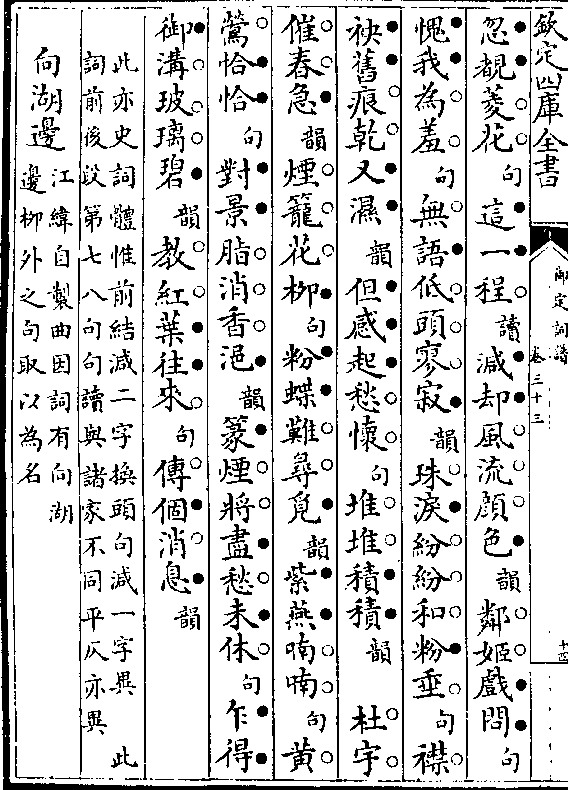 欽定四庫全書
御定詞譜
卷三十三
十四
忽覩菱花句這一程讀減却風流顔色韻鄰姬戲問句
愧我為羞句無語低頭寥寂韻珠淚紛紛和粉垂句襟
袂舊痕乾又濕韻但感起愁懷句堆堆積積韻杜宇
催春急韻煙籠花柳句粉蝶難尋覓韻紫燕喃喃句黄
鶯恰恰句對景脂消香浥韻篆煙將盡愁未休句乍得
御溝玻璃碧韻教紅葉往來句傳個消息韻
此亦史詞體惟前結減二字換頭句減一字異此
詞前後段第七八句句讀與諸家不同平仄亦異
向湖邊江緯自製曲因詞有向湖
邊柳外之句取以為名